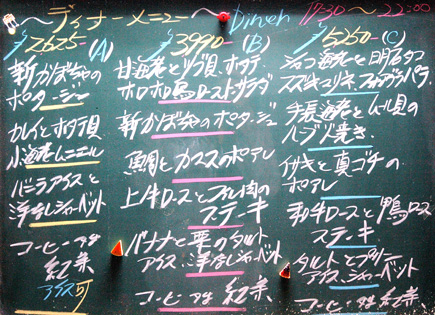 ディナーメニュー Dinner 17:30〜22:00
¥2625-(A)
新かぼちゃの
ポタージュ
カレイとホタテ貝
小海老ムニエル
バニラアイスと
洋なしシャーベット
コーヒー or
紅茶
アイス可
¥3990-(B)
甘海老とツブ貝、ホタテ
ホロホロ鳥ローストサラダ
新かぼちゃのポタージュ
鯛とカマスのポアレ
上ノ牛ロースとフィレ肉の
ステーキ
バナナと栗のタルト
アイス、洋なしシャーベット
コーヒー or 紅茶
¥5250-(C)
海老と明石タコ
手長海老とムール貝の
ハーブ焼き
イサキと真ゴチの
ポアレ
和牛ロースと鴨ロース
ステーキ
タルトとプリン
アイス、シャーベット
コーヒー or 紅茶